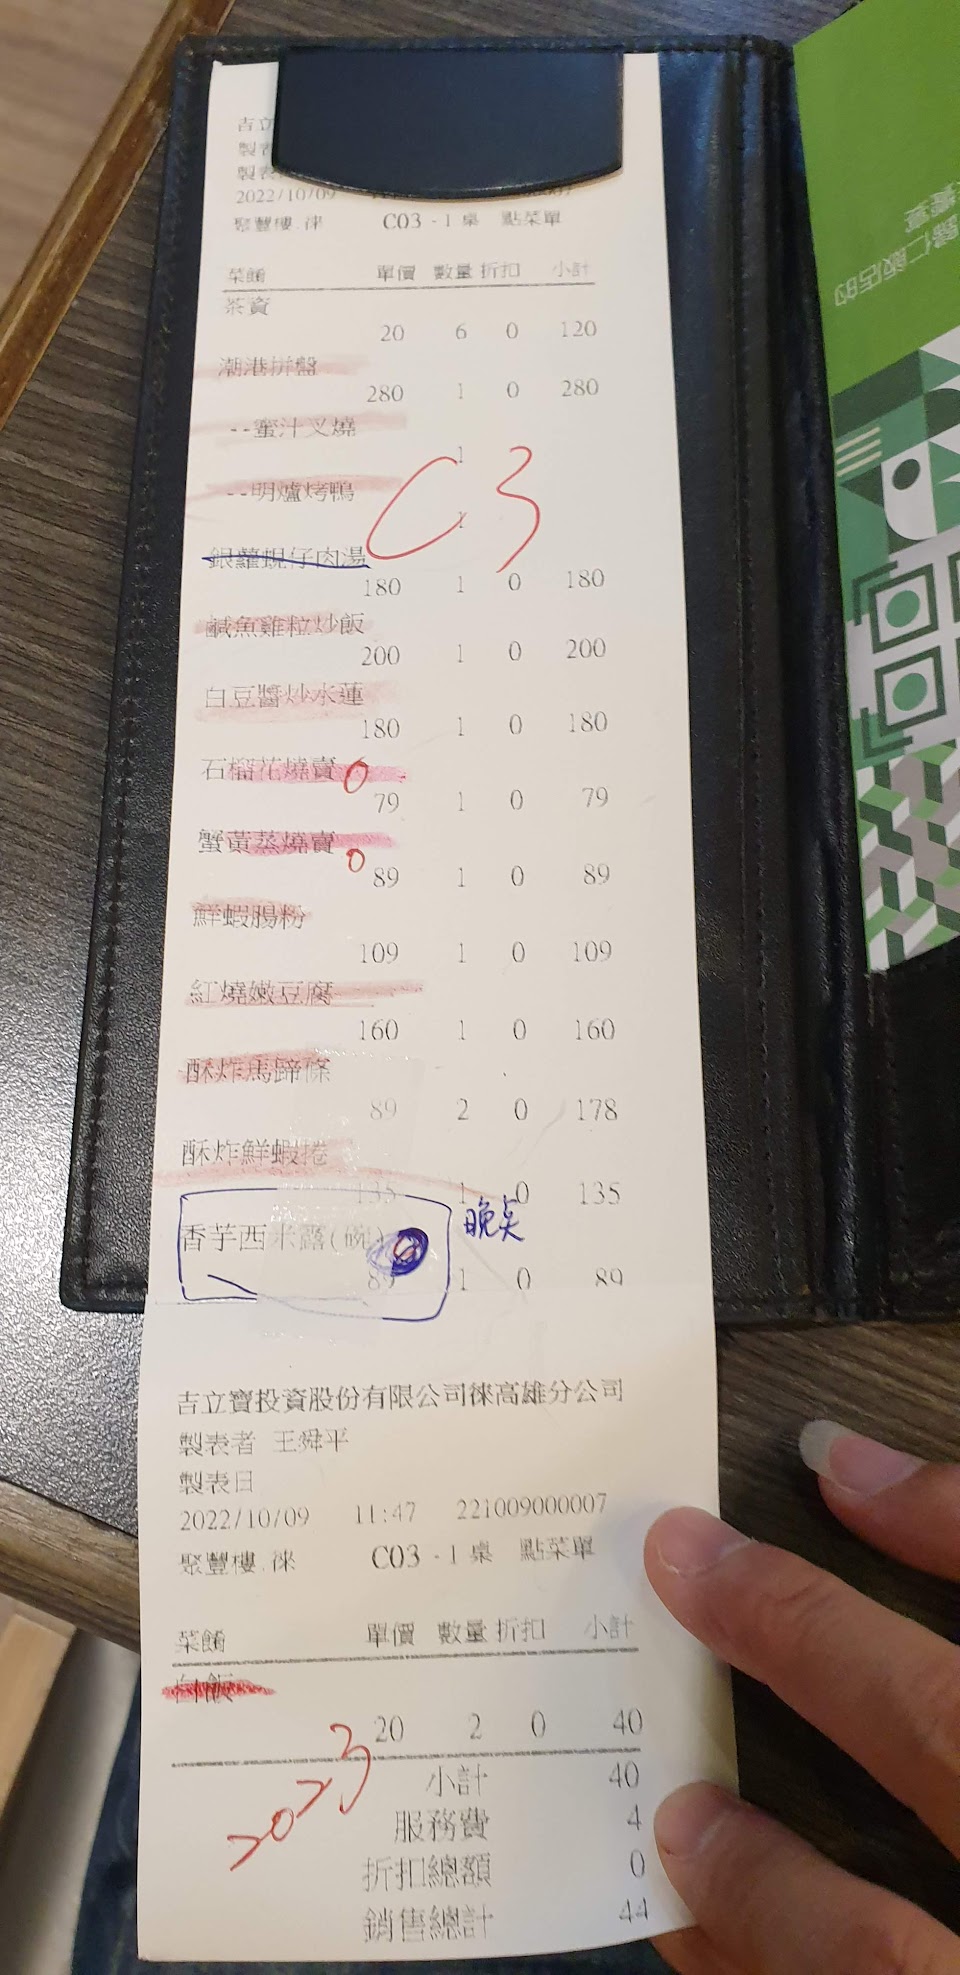 吉立
製表
製表
2022/10/09
聚豐樓.徠 C03 - 1 桌 點菜單
菜餚 單價 數量 折扣 小計
茶資
20 6 0 120
潮港拼盤
280 1 0 280
--蜜汁叉燒
1
--明爐烤鴨
1
C3
銀蘿蜆仔肉湯
180 1 0 180
鹹魚雞粒炒飯
200 1 0 200
白豆醬炒水蓮
180 1 0 180
石榴花燒賣
79 1 0 79
蟹黃蒸燒賣
89 1 0 89
鮮蝦腸粉
109 1 0 109
紅燒嫩豆腐
160 1 0 160
酥炸馬蹄條
89 2 0 178
酥炸鮮蝦捲
135 1 0 135
香芋西米露(碗) 晚点
89 1 0 89
吉立寶投資股份有限公司徠高雄分公司
製表者 王舜平
製表日
2022/10/09 11:47 221009000007
聚豐樓.徠 C03 - 1 桌 點菜單
菜餚 單價 數量 折扣 小計
白飯
20 2 0 40
小計 40
服務費 4
折扣總額 0
銷售總計 44